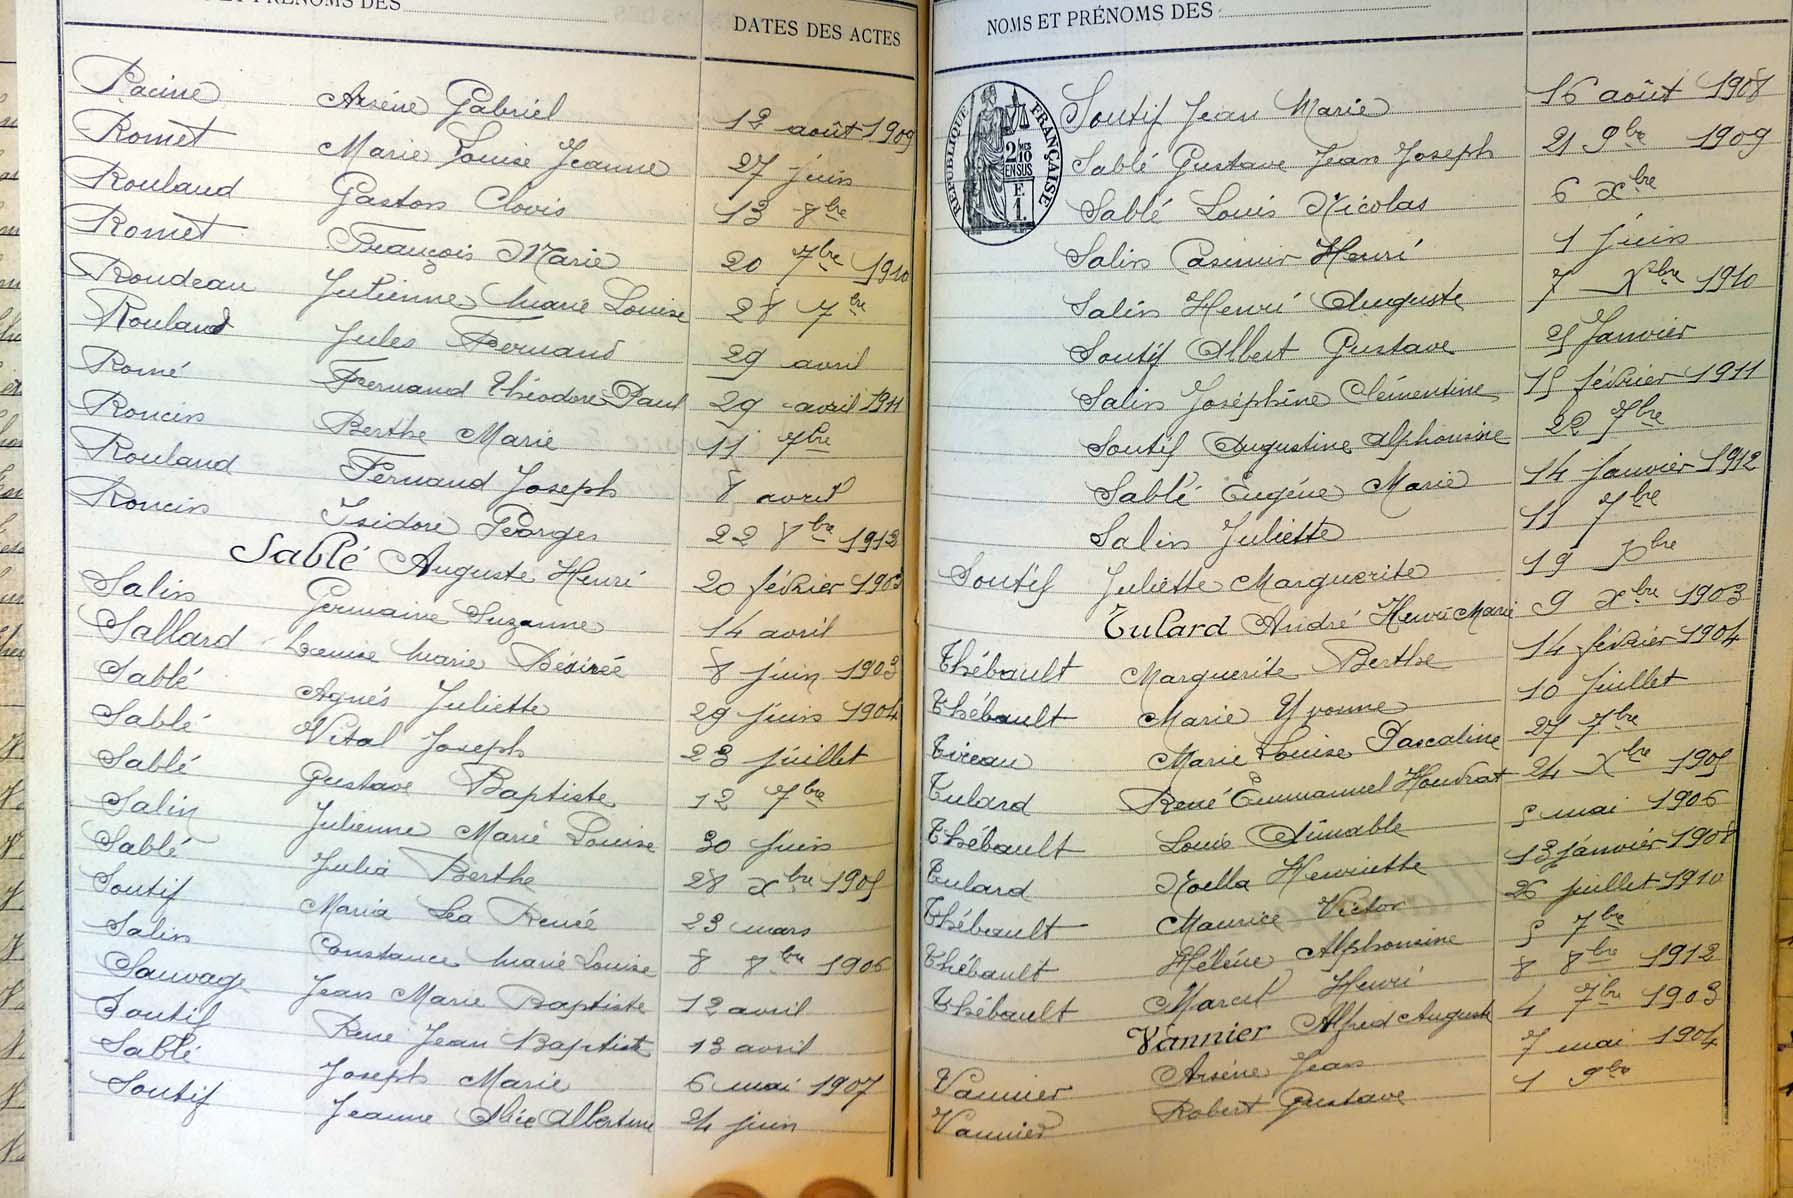 ET PRÉNOMS DES
DATES DES ACTES
Racine Arsène Gabriel 12 août 1909
Romet Marie Louise Jeanne 27 juin
Rouland Gaston Clovis 13 8bre
Romet François Marie 20 7bre 1910
Roudeau Julienne Marie Louise 28 7bre
Rouland Jules Fernand 29 avril
Romé Fernand Théodore Paul 29 avril 1911
Roncin Berthe Marie 11 7bre
Rouland Fernand Joseph 8 avril
Roncin Isidore Georges 22 8bre 1912
Sablé Auguste Henri 20 février 1903
Salin Germaine Suzanne 14 avril
Sallard Louise Marie Désirée 8 juin 1903
Sablé Agnès Juliette 29 juin 1904
Sablé Vital Joseph 23 juillet
Sablé Gustave Baptiste 12 7bre
Salin Julienne Marie Louise 30 juin
Sablé Julia Berthe 28 Xbre 1905
Soutif Maria Léa Renée 23 mars
Salin Constance Marie Louise 8 8bre 1906
Sauvage Jean Marie Baptiste 12 avril
Soutif René Jean Baptiste 13 avril
Sablé Joseph Marie 6 mai 1907
Soutif Jeanne Alice Albertine 24 juin
NOMS ET PRÉNOMS DES
RÉPUBLIQUE FRANÇAISE
2 MES
10
EN SUS
F.
1.
Soutif Jean Marie 16 août 1908
Sablé Gustave Jean Joseph 21 9bre 1909
Sablé Louis Nicolas 6 Xbre
Salin Casimir Henri 1 juin
Salin Henri Auguste 7 Xbre 1910
Soutif Albert Gustave 25 Janvier
Salin Joséphine Clémentine 15 février 1911
Soutif Augustine Alphonsine 22 7bre
Sablé Eugène Marie 14 Janvier 1912
Salin Juliette 11 7bre
Soutif Juliette Marguerite 19 Xbre
Tulard André Henri Marie 9 Xbre 1903
Thébault Marguerite Berthe 14 février 1904
Thébault Marie Yvonne 10 Juillet
Tireau Marie Louise Pascaline 27 7bre
Tulard René Emmanuel 24 Xbre 1905
Thébault Louis Aimable 5 mai 1906
Tulard Noella Henriette 13 janvier 1908
Thébault Maurice Victor 26 juillet 1910
Thébault Hélène Alphonsine 5 7bre
Thébault Marcel Henri 8 8bre 1912
Vannier Alfred Auguste 4 7bre 1903
Vannier Arsène Jean 7 mai 1904
Vannier Robert Gustave 1 9bre